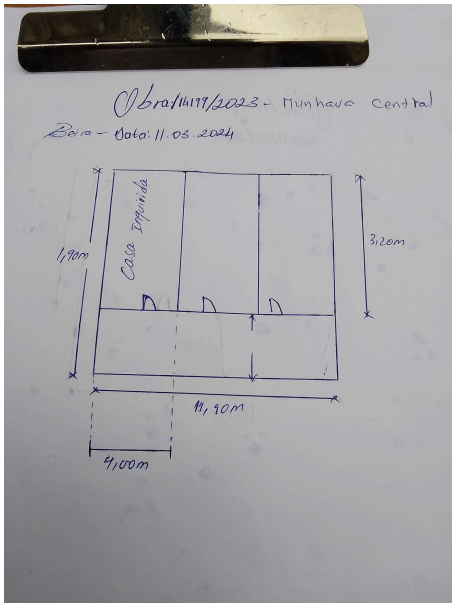 Obra/14199/2023 - Munhava Central
Beira - Data: 11.03.2024
Casa Inquirida
1,90m
3,20m
11,90m
4,00m